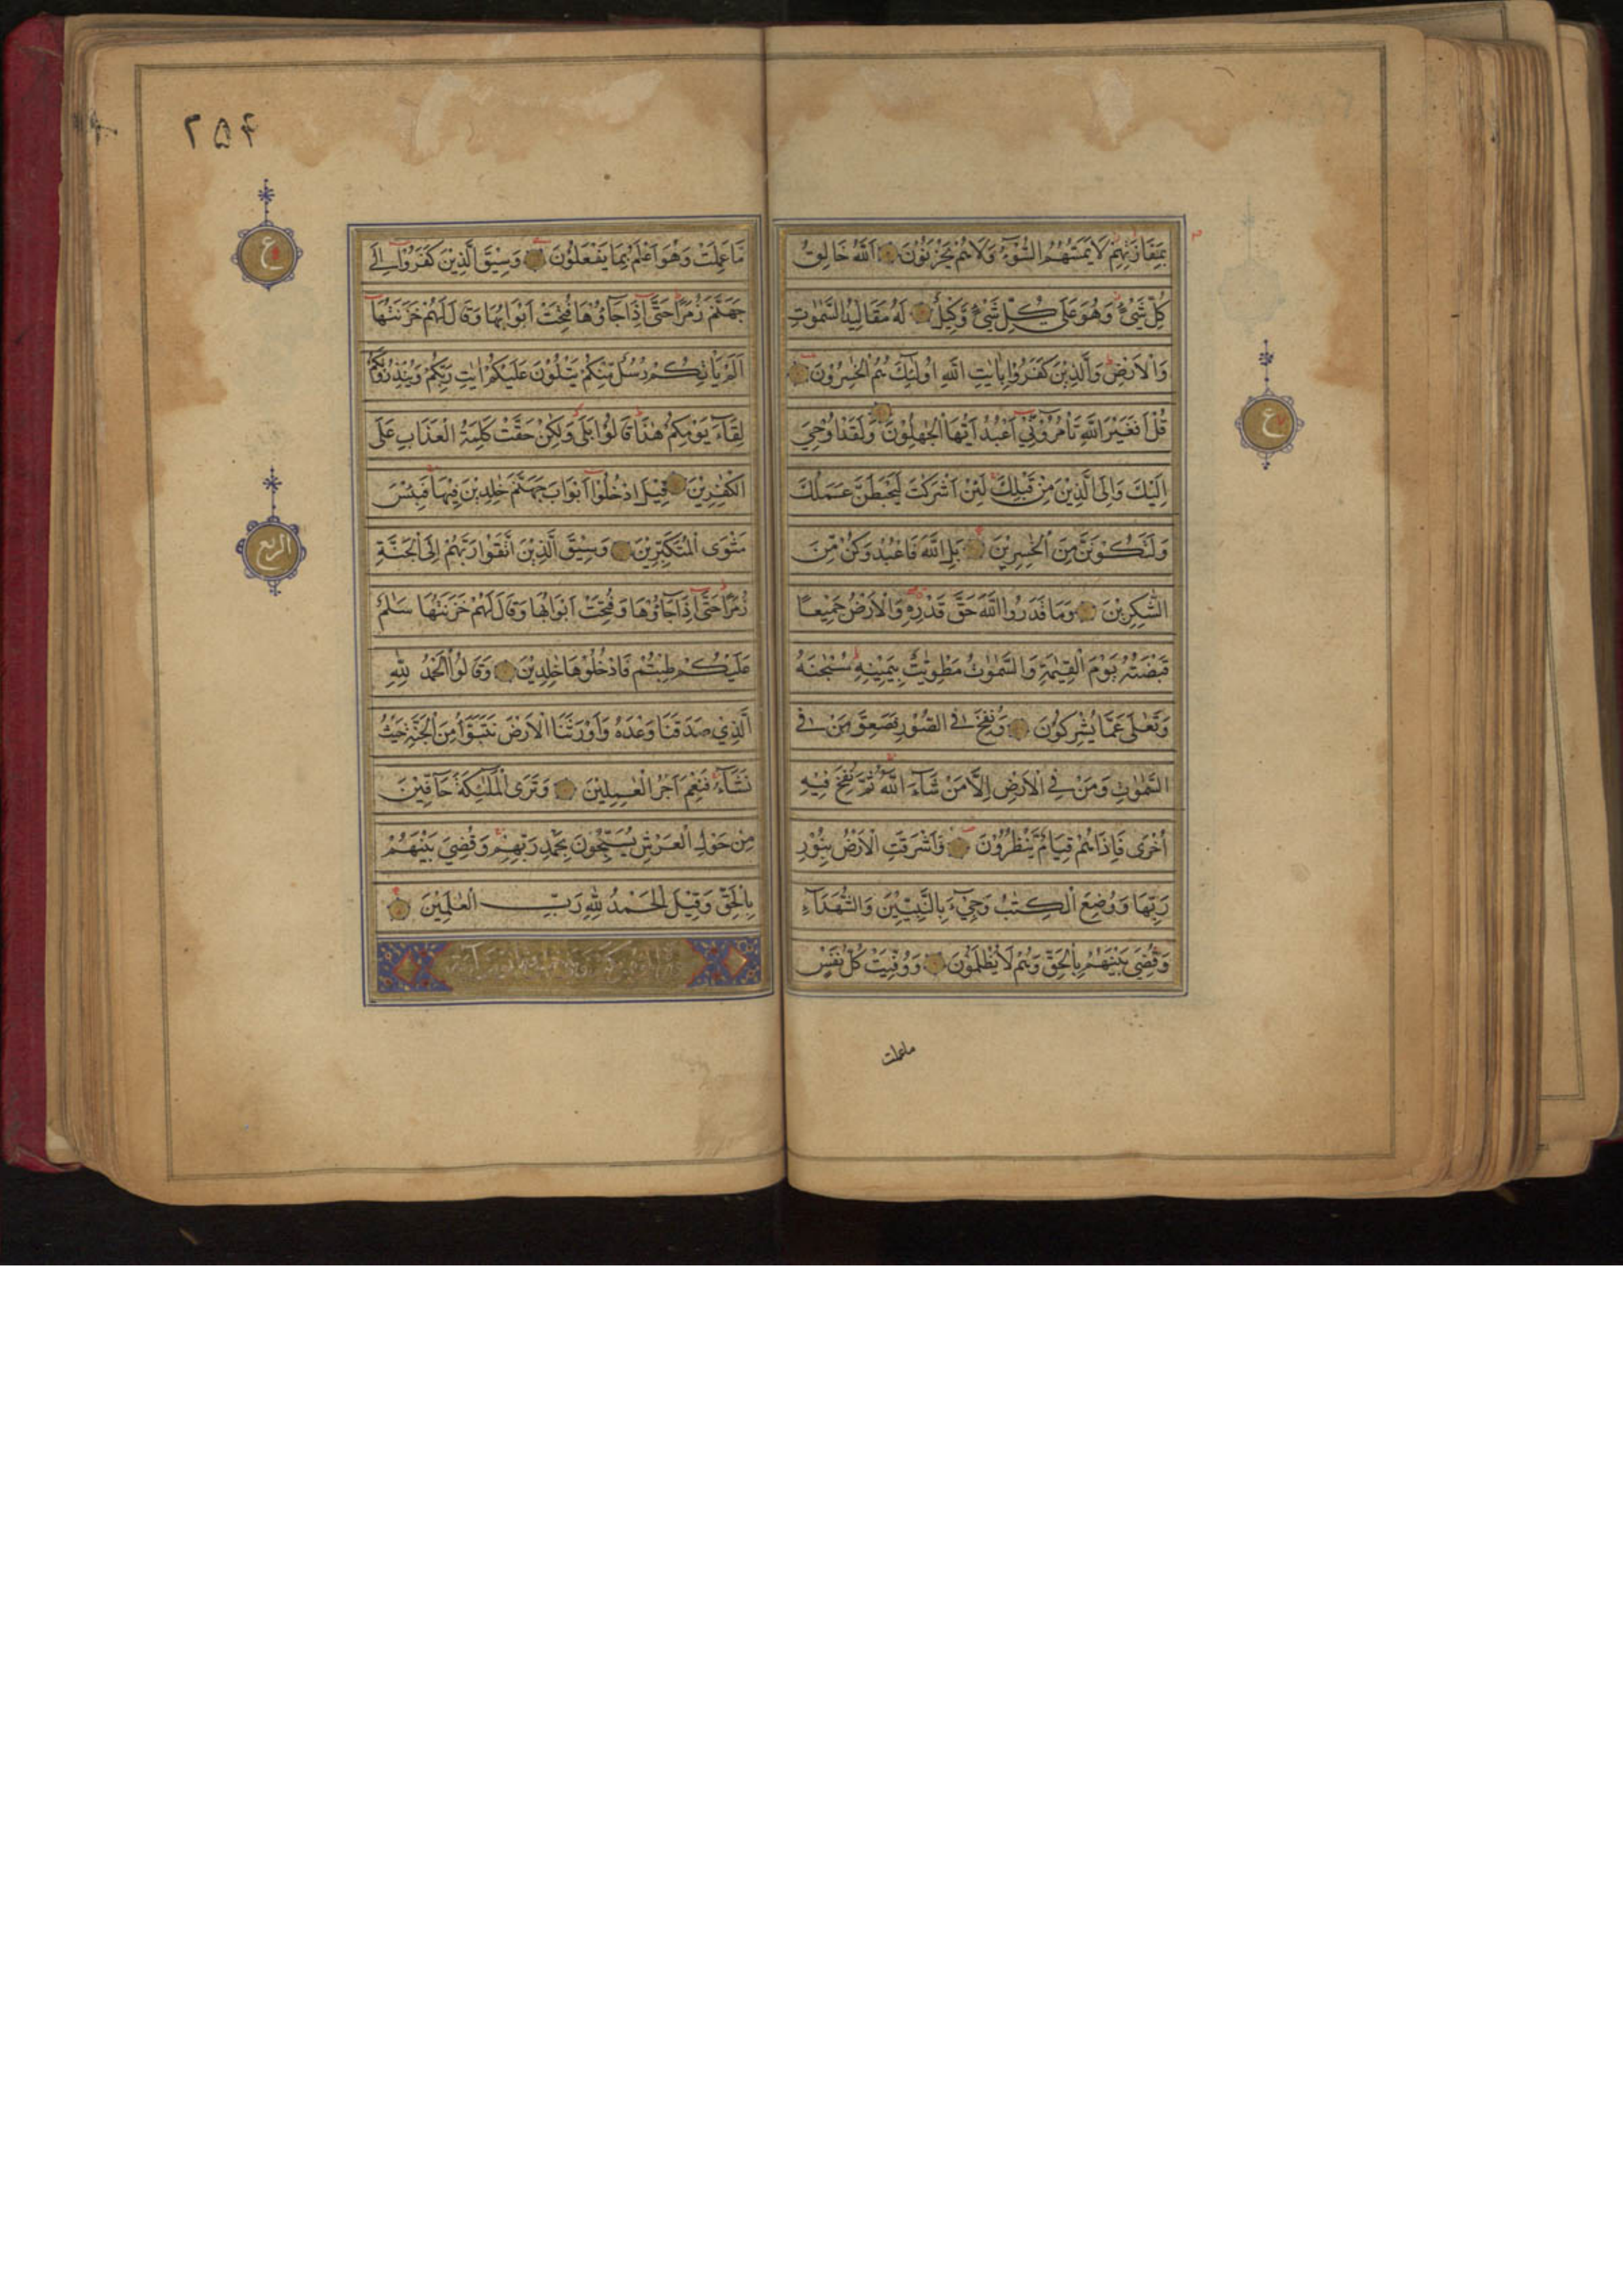 بِمَفَازَتِهِمْ لَا يَمَسُّهُمُ السُّوْٓءُ وَلَا هُمْ يَحْزَنُوْنَ اَللّٰهُ خَالِقُ
كُلِّ شَيْءٍ وَهُوَ عَلٰى كُلِّ شَيْءٍ وَّكِيْلٌ لَهُ مَقَالِيْدُ السَّمٰوٰتِ
وَالْاَرْضِ وَالَّذِيْنَ كَفَرُوْا بِاٰيٰتِ اللّٰهِ اُولٰٓئِكَ هُمُ الْخٰسِرُوْنَ
قُلْ اَفَغَيْرَ اللّٰهِ تَاْمُرُوْٓنِّيْ اَعْبُدُ اَيُّهَا الْجٰهِلُوْنَ وَلَقَدْ اُوْحِيَ
اِلَيْكَ وَاِلَى الَّذِيْنَ مِنْ قَبْلِكَ لَئِنْ اَشْرَكْتَ لَيَحْبَطَنَّ عَمَلُكَ
وَلَتَكُوْنَنَّ مِنَ الْخٰسِرِيْنَ بَلِ اللّٰهَ فَاعْبُدْ وَكُنْ مِّنَ
الشّٰكِرِيْنَ وَمَا قَدَرُوا اللّٰهَ حَقَّ قَدْرِهِ وَالْاَرْضُ جَمِيْعًا
قَبْضَتُهُ يَوْمَ الْقِيٰمَةِ وَالسَّمٰوٰتُ مَطْوِيّٰتٌ بِيَمِيْنِهِ سُبْحٰنَهُ
وَتَعٰلٰى عَمَّا يُشْرِكُوْنَ وَنُفِخَ فِي الصُّوْرِ فَصَعِقَ مَنْ فِي
السَّمٰوٰتِ وَمَنْ فِي الْاَرْضِ اِلَّا مَنْ شَآءَ اللّٰهُ ثُمَّ نُفِخَ فِيْهِ
اُخْرٰى فَاِذَا هُمْ قِيَامٌ يَّنْظُرُوْنَ وَاَشْرَقَتِ الْاَرْضُ بِنُوْرِ
رَبِّهَا وَوُضِعَ الْكِتٰبُ وَجِيْٓءَ بِالنَّبِيّٖنَ وَالشُّهَدَآءِ
وَقُضِيَ بَيْنَهُمْ بِالْحَقِّ وَهُمْ لَا يُظْلَمُوْنَ وَوُفِّيَتْ كُلُّ نَفْسٍ
ماعملت
٢٥۴
مَّا عَمِلَتْ وَهُوَ اَعْلَمُ بِمَا يَفْعَلُوْنَ وَسِيْقَ الَّذِيْنَ كَفَرُوْٓا اِلٰى
جَهَنَّمَ زُمَرًا حَتّٰٓى اِذَا جَآؤُهَا فُتِحَتْ اَبْوَابُهَا وَقَالَ لَهُمْ خَزَنَتُهَا
اَلَمْ يَاْتِكُمْ رُسُلٌ مِّنْكُمْ يَتْلُوْنَ عَلَيْكُمْ اٰيٰتِ رَبِّكُمْ وَيُنْذِرُوْنَكُمْ
لِقَآءَ يَوْمِكُمْ هٰذَا قَالُوْا بَلٰى وَلٰكِنْ حَقَّتْ كَلِمَةُ الْعَذَابِ عَلَى
الْكٰفِرِيْنَ قِيْلَ ادْخُلُوْٓا اَبْوَابَ جَهَنَّمَ خٰلِدِيْنَ فِيْهَا فَبِئْسَ
مَثْوَى الْمُتَكَبِّرِيْنَ وَسِيْقَ الَّذِيْنَ اتَّقَوْا رَبَّهُمْ اِلَى الْجَنَّةِ
زُمَرًا حَتّٰٓى اِذَا جَآؤُهَا وَفُتِحَتْ اَبْوَابُهَا وَقَالَ لَهُمْ خَزَنَتُهَا سَلٰمٌ
عَلَيْكُمْ طِبْتُمْ فَادْخُلُوْهَا خٰلِدِيْنَ وَقَالُوا الْحَمْدُ لِلّٰهِ
الَّذِيْ صَدَقَنَا وَعْدَهُ وَاَوْرَثَنَا الْاَرْضَ نَتَبَوَّاُ مِنَ الْجَنَّةِ حَيْثُ
نَشَآءُ فَنِعْمَ اَجْرُ الْعٰمِلِيْنَ وَتَرَى الْمَلٰٓئِكَةَ حَآفِّيْنَ
مِنْ حَوْلِ الْعَرْشِ يُسَبِّحُوْنَ بِحَمْدِ رَبِّهِمْ وَقُضِيَ بَيْنَهُمْ
بِالْحَقِّ وَقِيْلَ الْحَمْدُ لِلّٰهِ رَبِّ الْعٰلَمِيْنَ
ع
ع
الربع